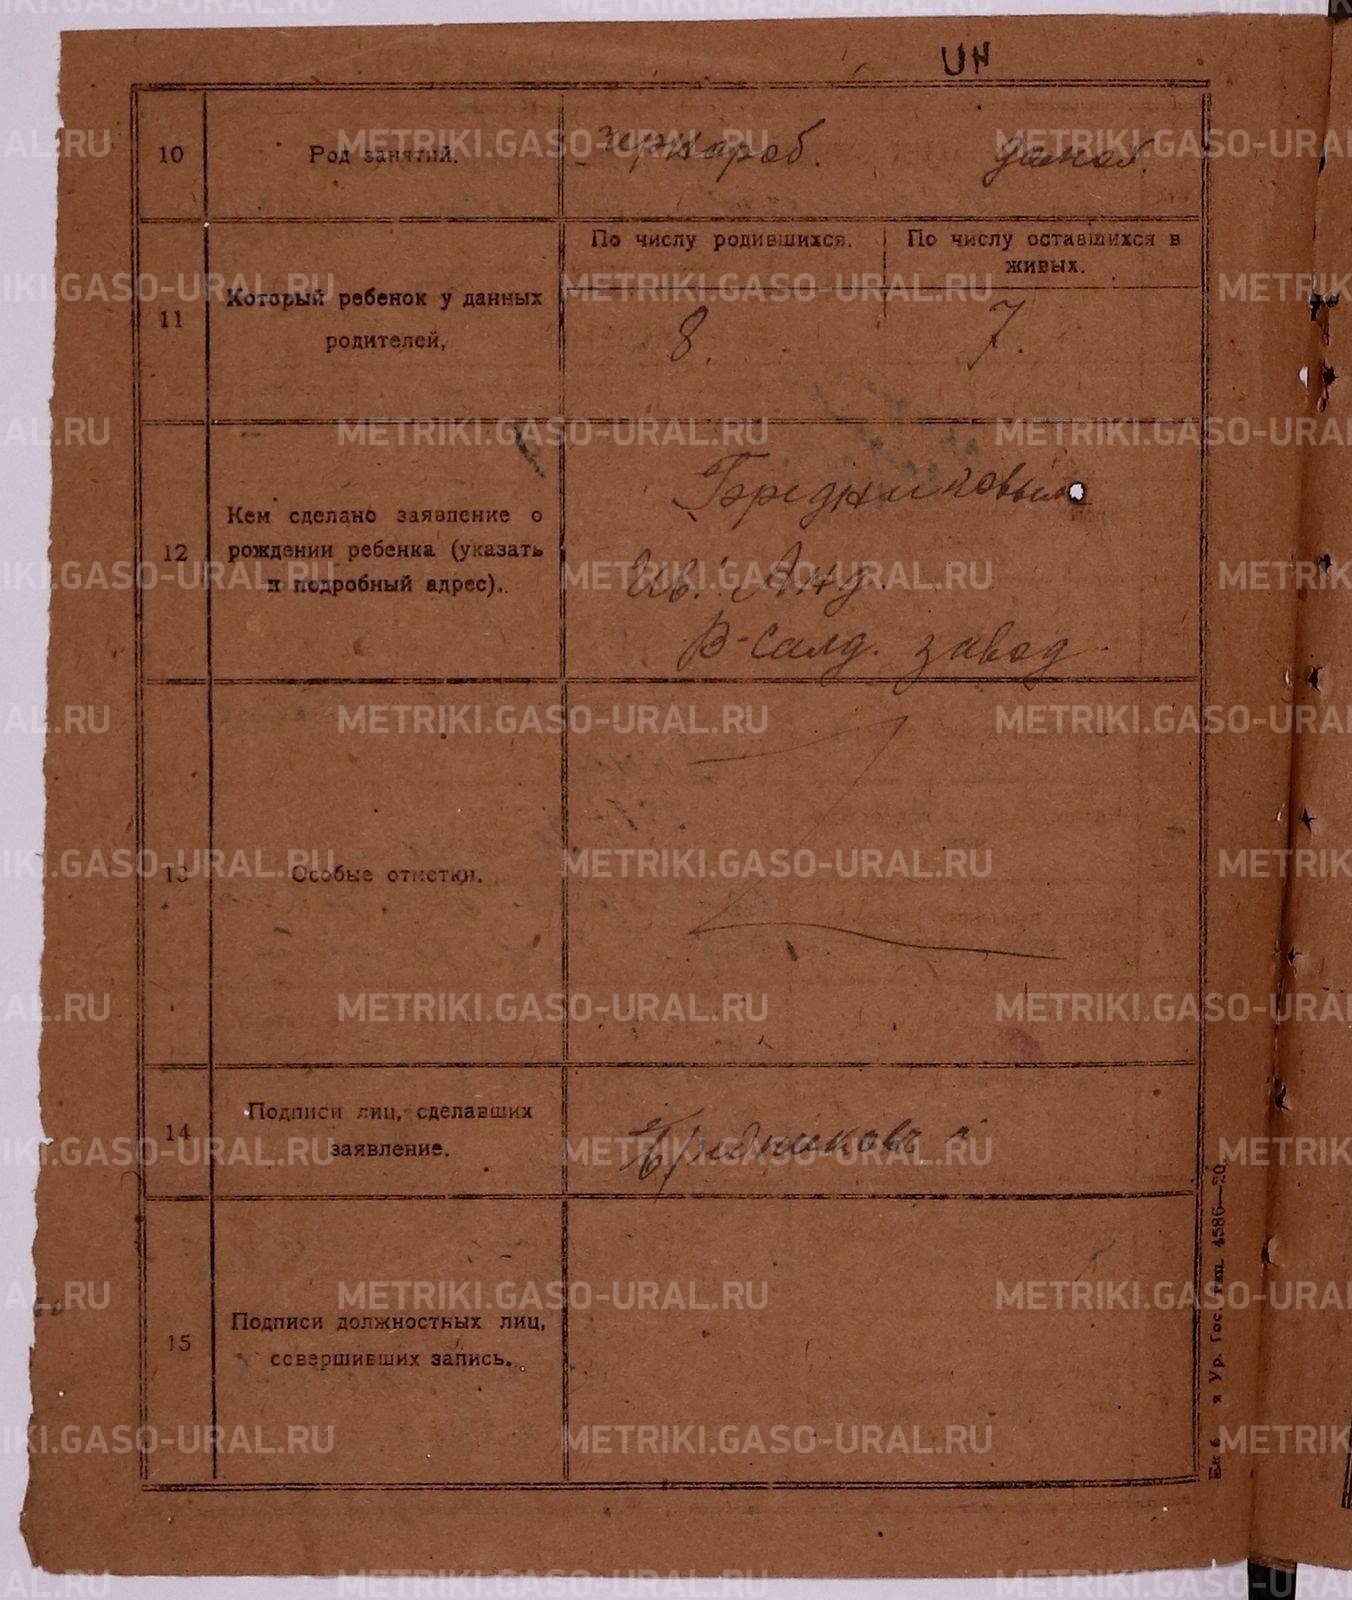 UN
10 Род занятий. чернораб. домоб.
По числу родившихся. По числу оставшихся в живых.
11 Который ребенок у данных родителей, 8. 7.
12 Кем сделано заявление о рождении ребенка (указать и подробный адрес).
Бредниковым
Ив. Анд.
В-Салд. завод.
13 Особые отметки.
14 Подписи лиц, сделавших заявление. Бредниковъ
15 Подписи должностных лиц, совершивших запись.
я Ур. Гос. тип. 4586—20.
METRIKI.GASO-URAL.RU